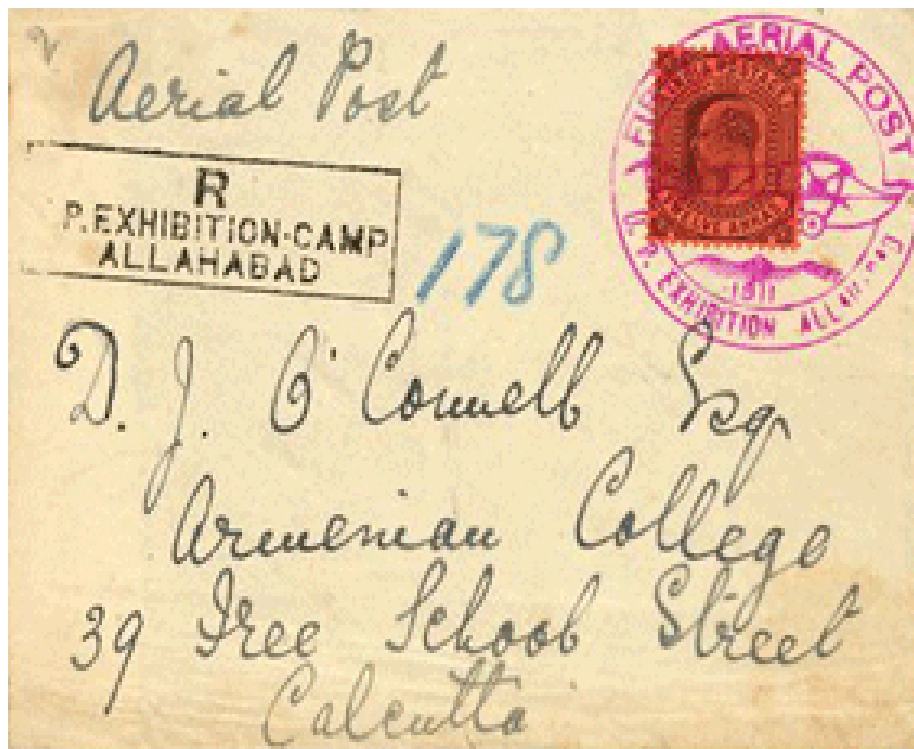 Aerial Post
R
P. EXHIBITION-CAMP
ALLAHABAD
178
FIRST AERIAL POST
1911
U.P. EXHIBITION ALLAHABAD
INDIA POSTAGE
D. J. O'Connell Esq.
Armenian College
39 Free School Street
Calcutta